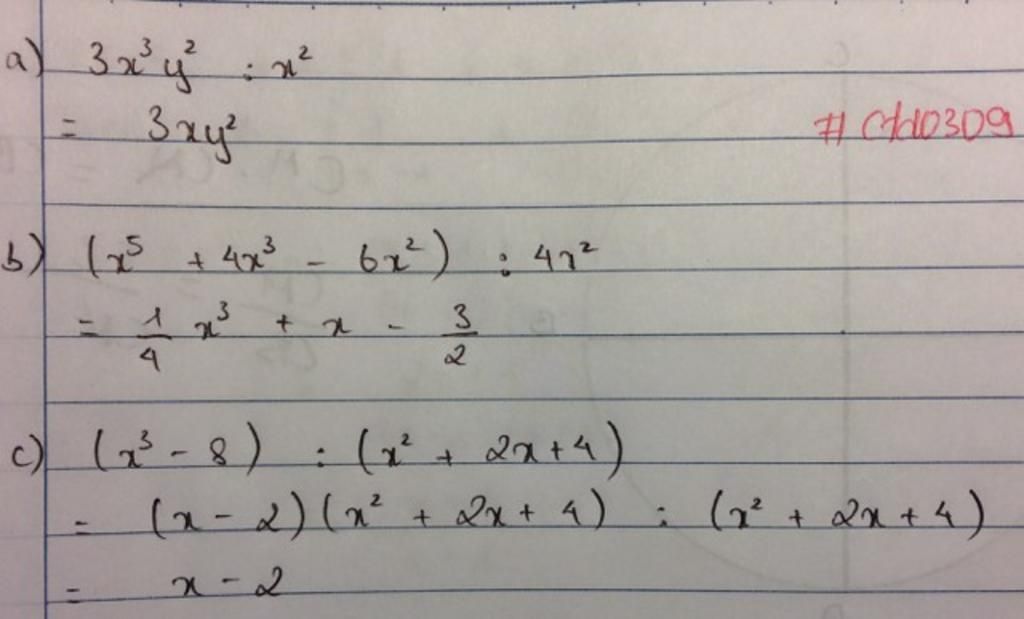 a) 3x³y² : x²
= 3xy²
# Ctd10309
b) (x⁵ + 4x³ - 6x²) : 4x²
= 1/4 x³ + x - 3/2
c) (x³ - 8) : (x² + 2x + 4)
= (x - 2)(x² + 2x + 4) : (x² + 2x + 4)
= x - 2